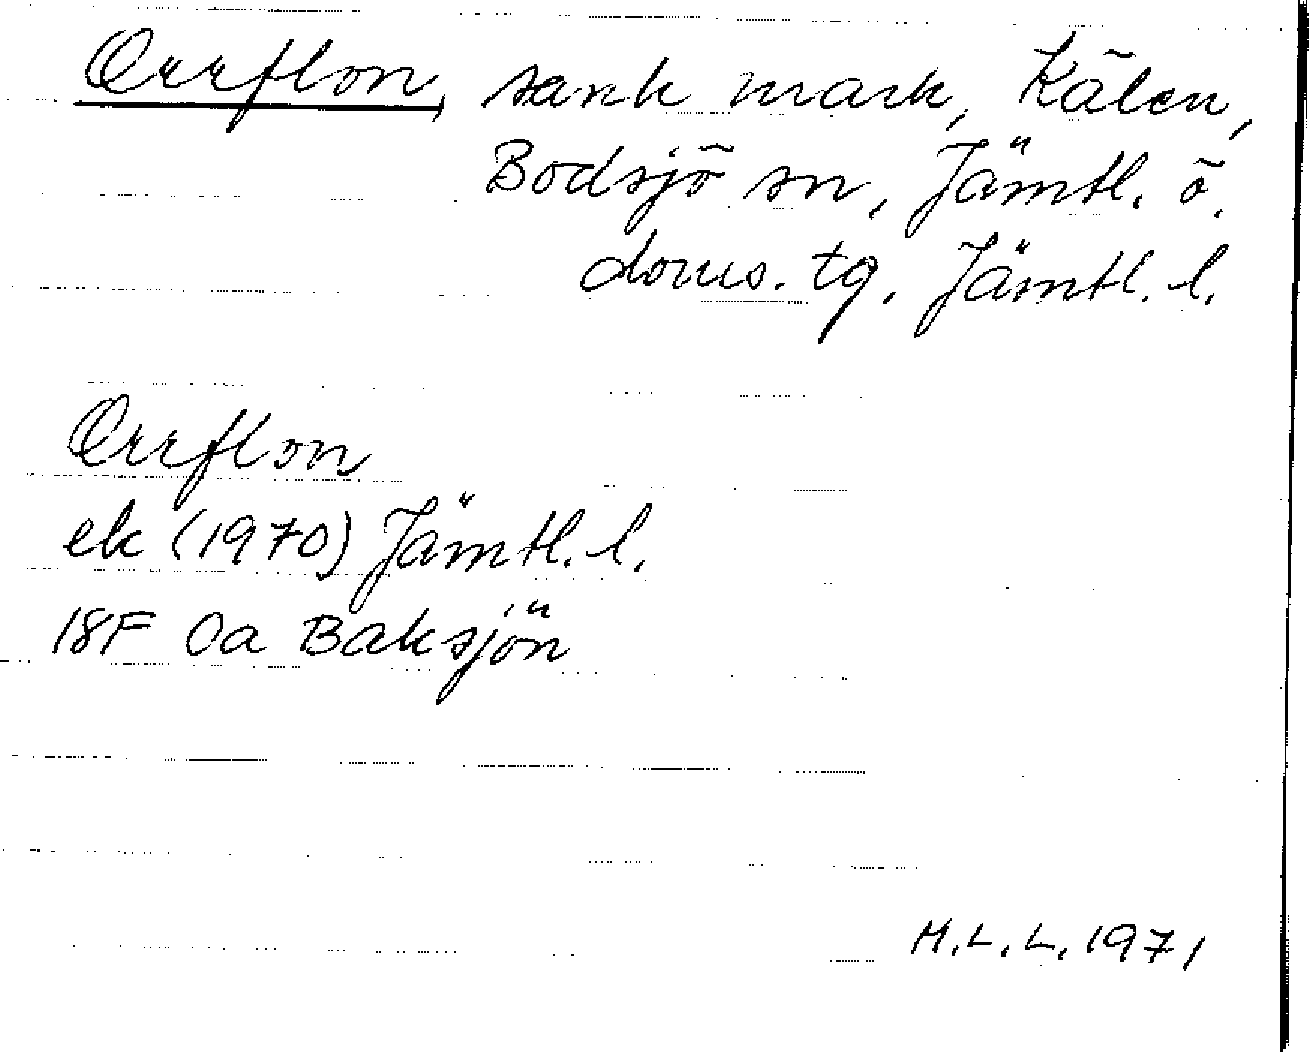 Orrflon, sank mark, Kälen,
Bodsjö sn, Jämtl. ö.
doms. tg. Jämtl. l.
Orrflon
ek (1970) Jämtl. l.
18F 0a Baksjön
M.L.L. 1971